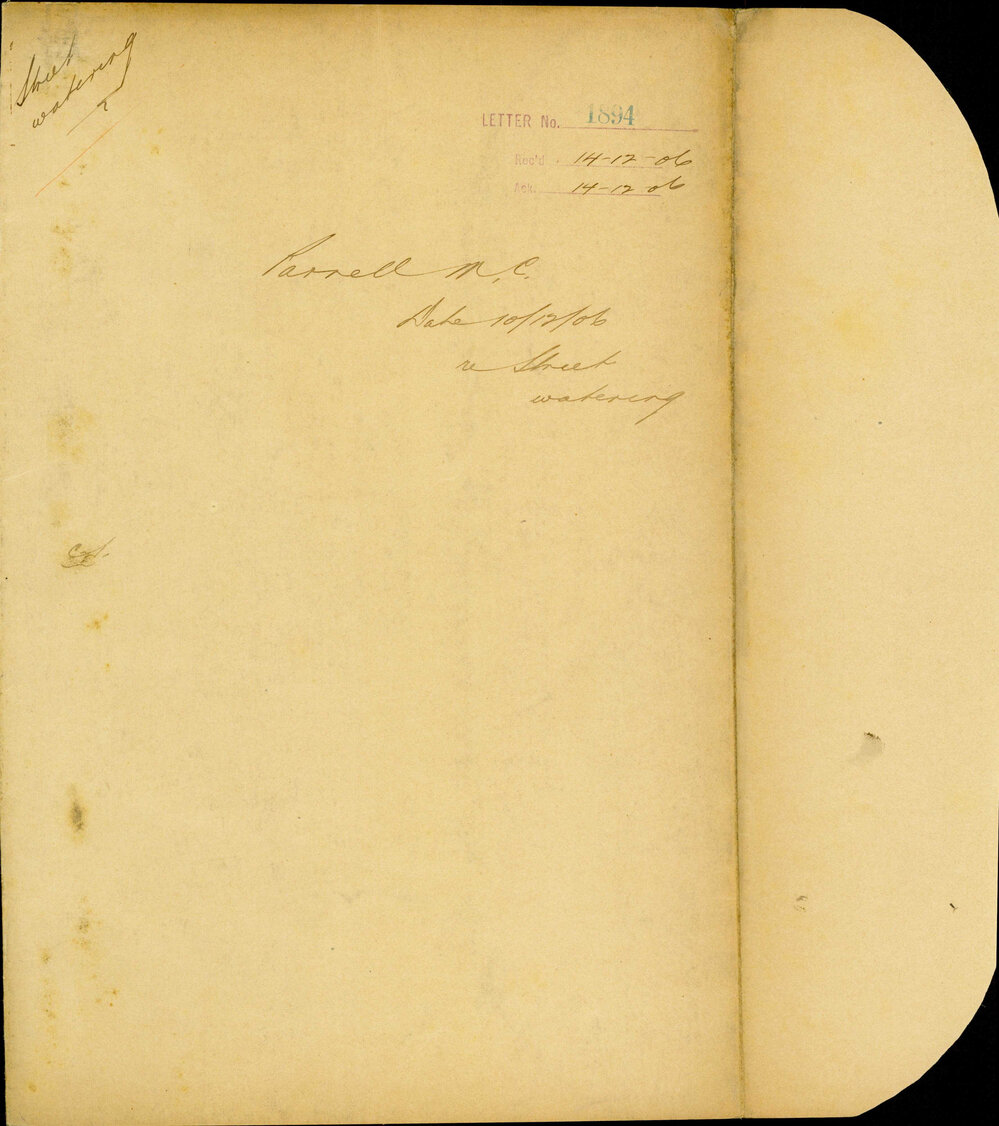 Street
watering
2
LETTER No. 1894
Rec'd. 14-12-06
Ack. 14-12-06
Parnell M. C.
Date 10/12/06
re Street
watering